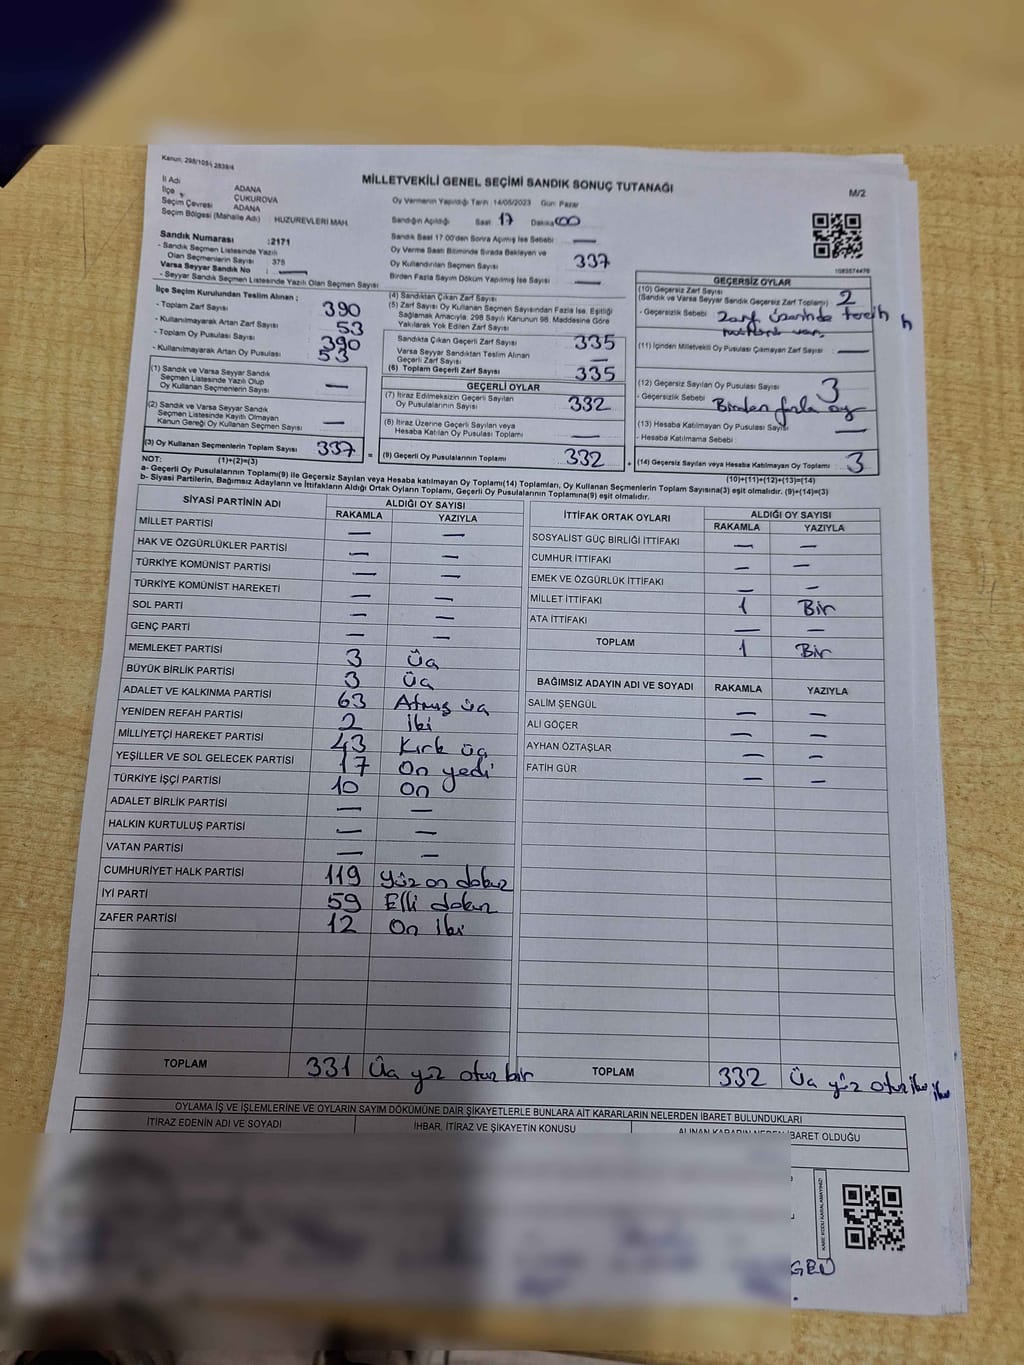 Kanun; 298/105, 2839/4
MİLLETVEKİLİ GENEL SEÇİMİ SANDIK SONUÇ TUTANAĞI
M/2
İl Adı ADANA
İlçe ÇUKUROVA
Seçim Çevresi ADANA
Seçim Bölgesi (Mahalle Adı) : HUZUREVLERİ MAH.
Oy Vermenin Yapıldığı Tarih 14/05/2023 Gün: Pazar
Sandığın Açıldığı Saat 17 Dakika 00
Sandık Numarası :2171
- Sandık Seçmen Listesinde Yazılı
Olan Seçmenlerin Sayısı 375
Varsa Seyyar Sandık No : —
- Seyyar Sandık Seçmen Listesinde Yazılı Olan Seçmen Sayısı
Sandık Saat 17.00'den Sonra Açılmış İse Sebebi : —
Oy Verme Saati Bitiminde Sırada Bekleyen ve
Oy Kullandırılan Seçmen Sayısı 337
Birden Fazla Sayım Döküm Yapılmış İse Sayısı —
1083574476
İlçe Seçim Kurulundan Teslim Alınan ;
- Toplam Zarf Sayısı 390
- Kullanılmayarak Artan Zarf Sayısı 53
- Toplam Oy Pusulası Sayısı 390
- Kullanılmayarak Artan Oy Pusulası 53
(1) Sandık ve Varsa Seyyar Sandık
Seçmen Listesinde Yazılı Olup
Oy Kullanan Seçmenlerin Sayısı —
(2) Sandık ve Varsa Seyyar Sandık
Seçmen Listesinde Kayıtlı Olmayan
Kanun Gereği Oy Kullanan Seçmen Sayısı —
(3) Oy Kullanan Seçmenlerin Toplam Sayısı 337
(4) Sandıktan Çıkan Zarf Sayısı
(5) Zarf Sayısı Oy Kullanan Seçmen Sayısından Fazla İse, Eşitliği
Sağlamak Amacıyla, 298 Sayılı Kanunun 98. Maddesine Göre
Yakılarak Yok Edilen Zarf Sayısı
Sandıkta Çıkan Geçerli Zarf Sayısı 335
Varsa Seyyar Sandıktan Teslim Alınan
Geçerli Zarf Sayısı —
(6) Toplam Geçerli Zarf Sayısı 335
GEÇERLİ OYLAR
(7) İtiraz Edilmeksizin Geçerli Sayılan
Oy Pusulalarının Sayısı 332
(8) İtiraz Üzerine Geçerli Sayılan veya
Hesaba Katılan Oy Pusulası Toplamı —
= (9) Geçerli Oy Pusulalarının Toplamı 332
GEÇERSİZ OYLAR
(10) Geçersiz Zarf Sayısı
(Sandık ve Varsa Seyyar Sandık Geçersiz Zarf Toplamı) 2
- Geçersizlik Sebebi Zarf üzerinde tercih
var.
(11) İçinden Milletvekili Oy Pusulası Çıkmayan Zarf Sayısı —
(12) Geçersiz Sayılan Oy Pusulası Sayısı 3
- Geçersizlik Sebebi Birden fazla oy
(13) Hesaba Katılmayan Oy Pusulası Sayısı —
- Hesaba Katılmama Sebebi :
+ (14) Geçersiz Sayılan veya Hesaba Katılmayan Oy Toplamı 3
NOT: (1)+(2)=(3) (10)+(11)+(12)+(13)=(14)
a- Geçerli Oy Pusulalarının Toplamı(9) ile Geçersiz Sayılan veya Hesaba Katılmayan Oy Toplamı(14) Toplamları, Oy Kullanan Seçmenlerin Toplam Sayısına(3) eşit olmalıdır. (9)+(14)=(3)
b- Siyasi Partilerin, Bağımsız Adayların ve İttifakların Aldığı Ortak Oyların Toplamı, Geçerli Oy Pusulalarının Toplamına(9) eşit olmalıdır.
SİYASİ PARTİNİN ADI ALDIĞI OY SAYISI
RAKAMLA YAZIYLA
MİLLET PARTİSİ — —
HAK VE ÖZGÜRLÜKLER PARTİSİ — —
TÜRKİYE KOMÜNİST PARTİSİ — —
TÜRKİYE KOMÜNİST HAREKETİ — —
SOL PARTİ — —
GENÇ PARTİ — —
MEMLEKET PARTİSİ 3 Üç
BÜYÜK BİRLİK PARTİSİ 3 Üç
ADALET VE KALKINMA PARTİSİ 63 Atmış üç
YENİDEN REFAH PARTİSİ 2 İki
MİLLİYETÇİ HAREKET PARTİSİ 43 Kırk üç
YEŞİLLER VE SOL GELECEK PARTİSİ 17 On yedi
TÜRKİYE İŞÇİ PARTİSİ 10 On
ADALET BİRLİK PARTİSİ — —
HALKIN KURTULUŞ PARTİSİ — —
VATAN PARTİSİ — —
CUMHURİYET HALK PARTİSİ 119 Yüz on dokuz
İYİ PARTİ 59 Elli dokuz
ZAFER PARTİSİ 12 On İki
TOPLAM 331 Üç yüz otuz bir
İTTİFAK ORTAK OYLARI ALDIĞI OY SAYISI
RAKAMLA YAZIYLA
SOSYALİST GÜÇ BİRLİĞİ İTTİFAKI — —
CUMHUR İTTİFAKI — —
EMEK VE ÖZGÜRLÜK İTTİFAKI — —
MİLLET İTTİFAKI 1 Bir
ATA İTTİFAKI — —
TOPLAM 1 Bir
BAĞIMSIZ ADAYIN ADI VE SOYADI RAKAMLA YAZIYLA
SALİM ŞENGÜL — —
ALİ GÖÇER — —
AYHAN ÖZTAŞLAR — —
FATİH GÜR — —
TOPLAM 332 Üç yüz otuz iki
OYLAMA İŞ VE İŞLEMLERİNE VE OYLARIN SAYIM DÖKÜMÜNE DAİR ŞİKAYETLERLE BUNLARA AİT KARARLARIN NELERDEN İBARET BULUNDUKLARI
İTİRAZ EDENİN ADI VE SOYADI İHBAR, İTİRAZ VE ŞİKAYETİN KONUSU ALINAN KARARIN NEDEN İBARET OLDUĞU
KARE KODU KARALAMAYINIZ!